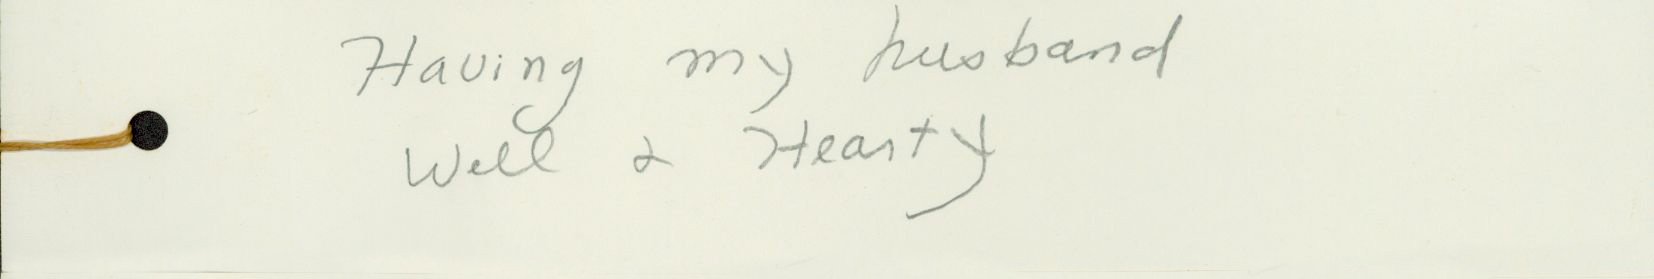 Having my husband
Well & Hearty